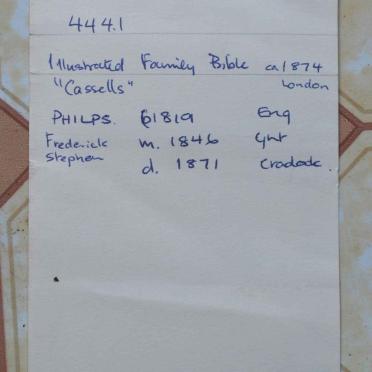 4441
Illustrated Family Bible ca 1874
"Cassells" London
PHILPS. b1819 Eng
Frederick m. 1846 Ght
Stephen d. 1871 Cradock.